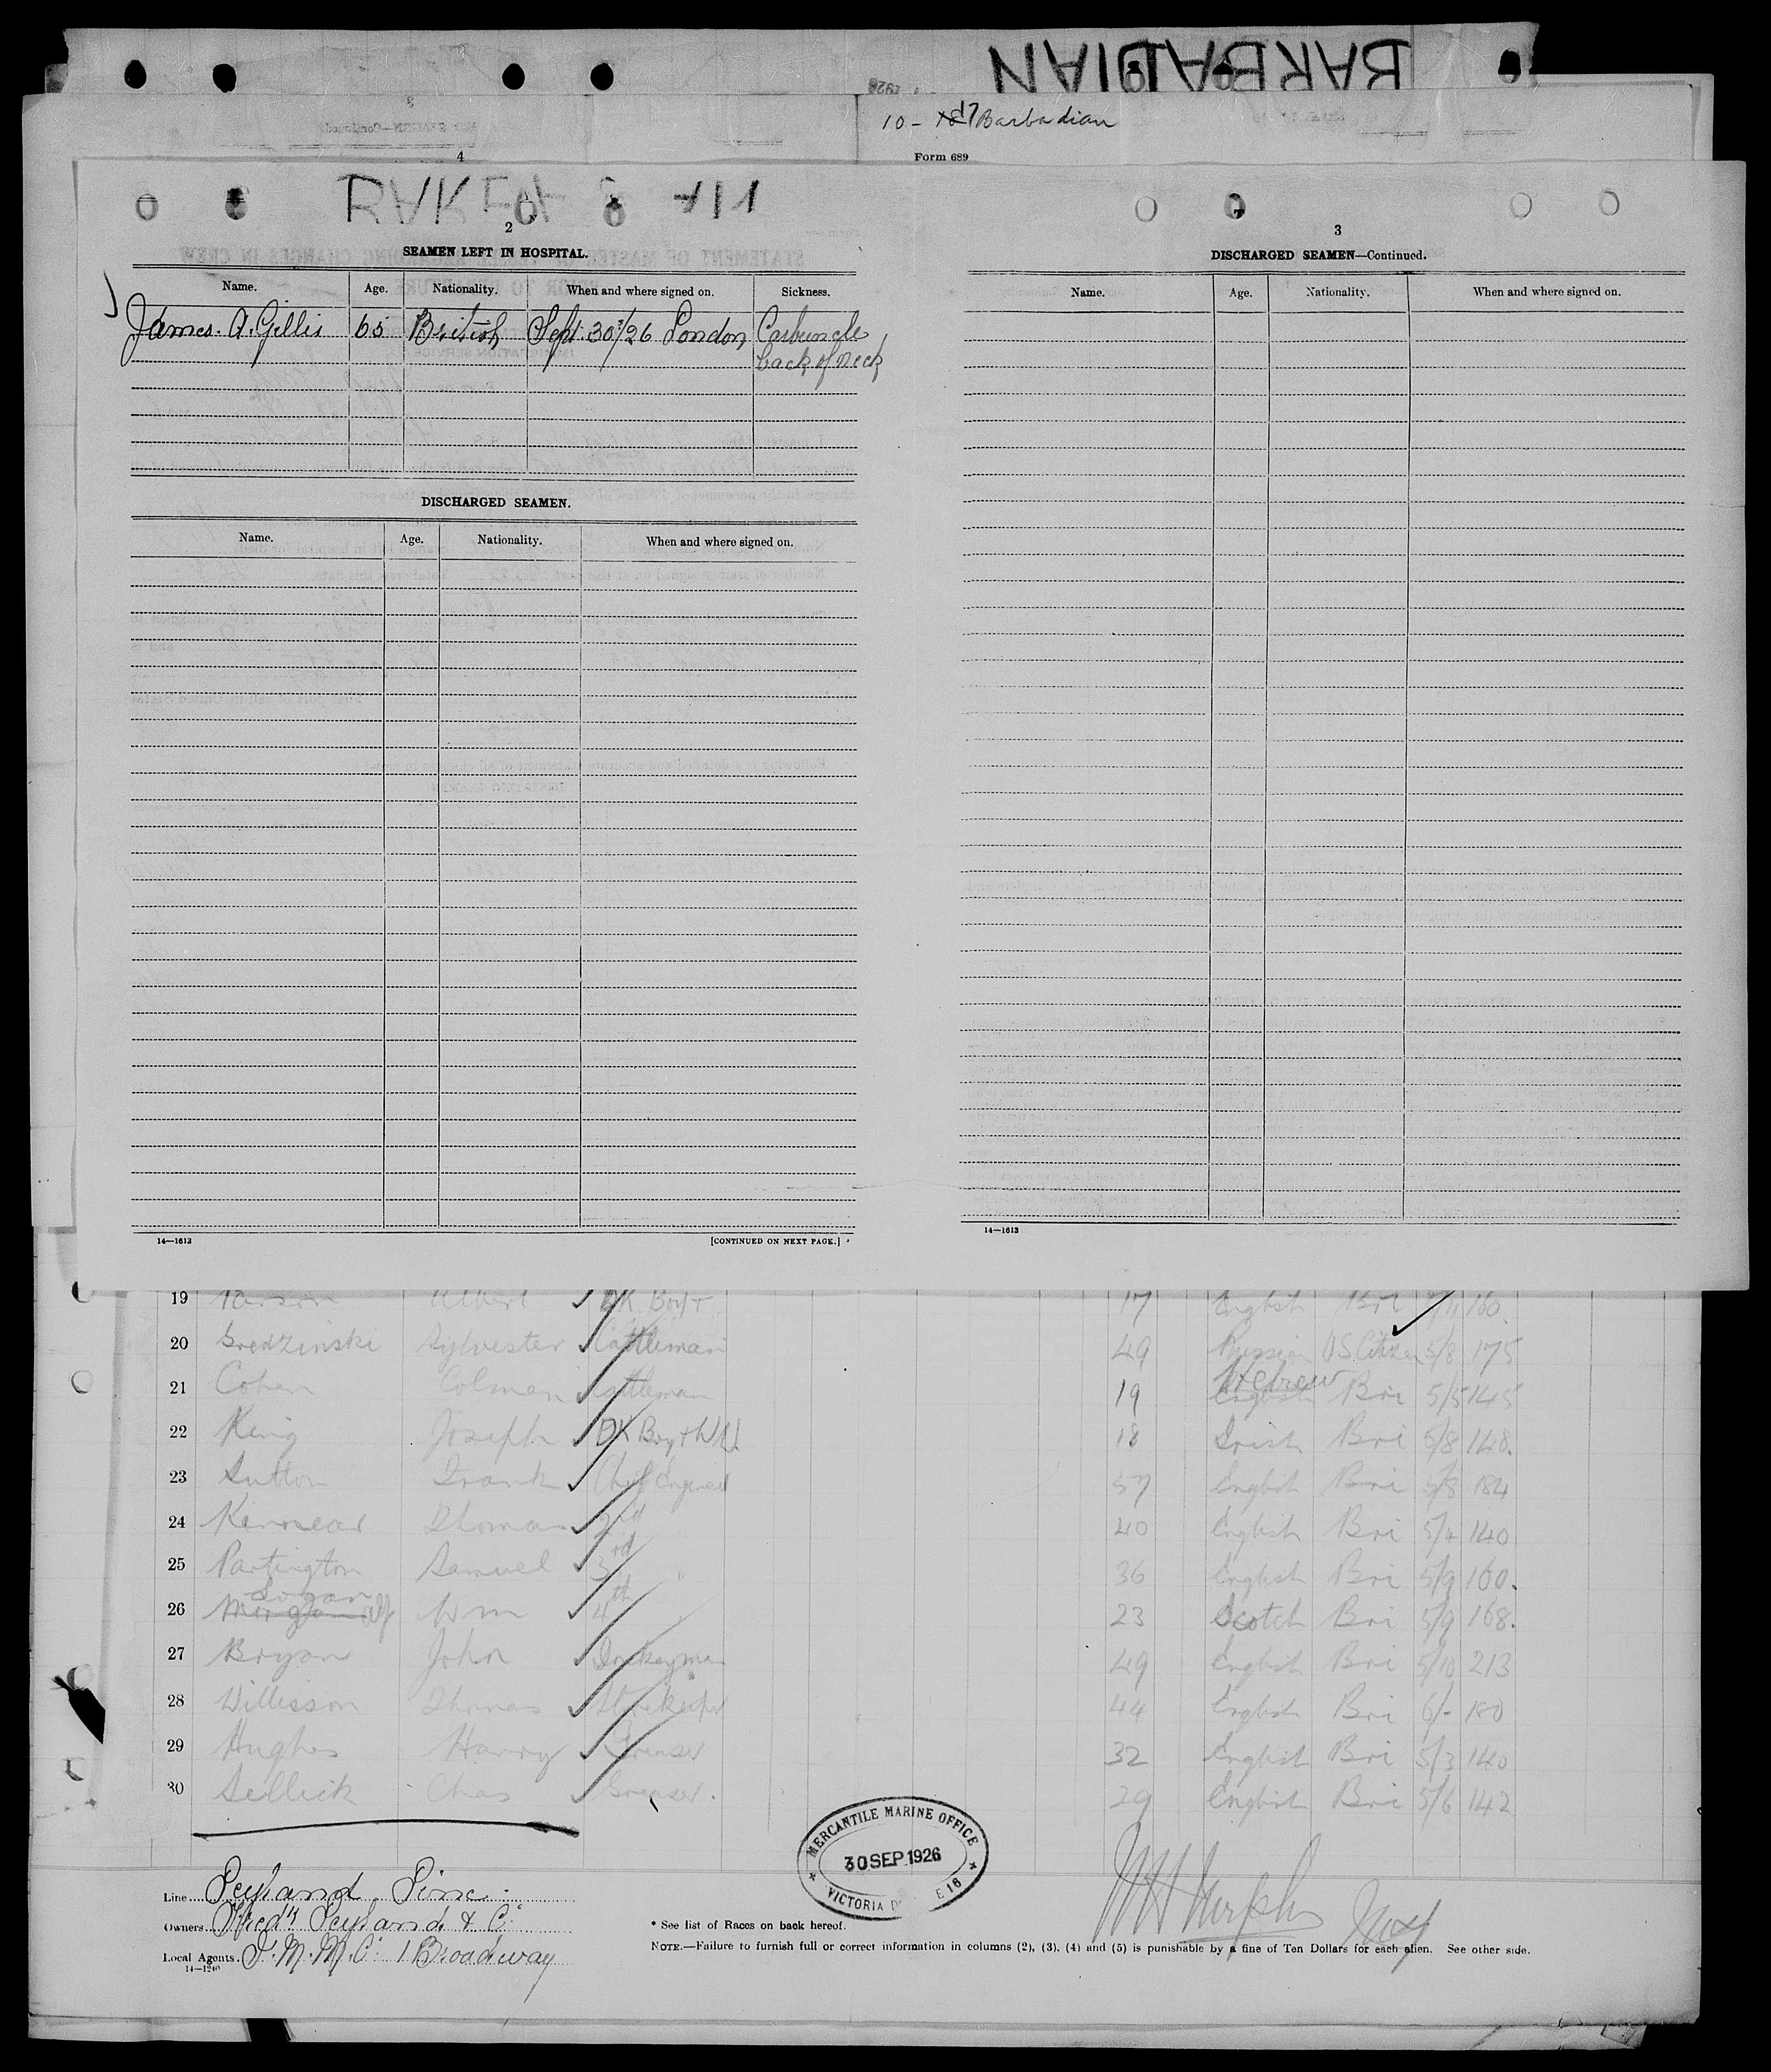 BARBADIAN
10 - Barbadian
Form 689
4
2
SEAMEN LEFT IN HOSPITAL.
Name. Age. Nationality. When and where signed on. Sickness.
James. A. Gillis 65 British Sept. 30/26 London Carbuncle
back of neck
DISCHARGED SEAMEN.
Name. Age. Nationality. When and where signed on.
14—1613 [CONTINUED ON NEXT PAGE.]
3
DISCHARGED SEAMEN—Continued.
Name. Age. Nationality. When and where signed on.
14—1613
19 Albert 17 English Bri 160.
20 Gredzinski Sylvester Cattleman 49 Russian US Citizen 5/8 175
21 Cohen Colman Cattleman 19 English Hebrew Bri 5/5 145
22 King Joseph 18 Irish Bri 5/8 148.
23 Sutton Frank Chief Engineer 57 English Bri 5/8 184
24 Kennear Thomas 2nd 40 English Bri 5/4 140
25 Partington Samuel 3rd " 36 English Bri 5/9 160.
26 Logan Wm 4th 23 Scotch Bri 5/9 168.
27 Bryan John Donkeyman 49 English Bri 5/10 213
28 Willisson Thomas Storekeeper 44 English Bri 6/- 180
29 Hughes Harry Greaser 32 English Bri 5/3 140
30 Sellick Chas Greaser. 29 English Bri 5/6 142
MERCANTILE MARINE OFFICE
30 SEP 1926
VICTORIA D E 16
Line Leyland Line.
Owners Fred'k Leyland & Co
Local Agents. I. M. M. Co 1 Broadway
14—1240
* See list of Races on back hereof.
NOTE.—Failure to furnish full or correct information in columns (2), (3), (4) and (5) is punishable by a fine of Ten Dollars for each alien. See other side.